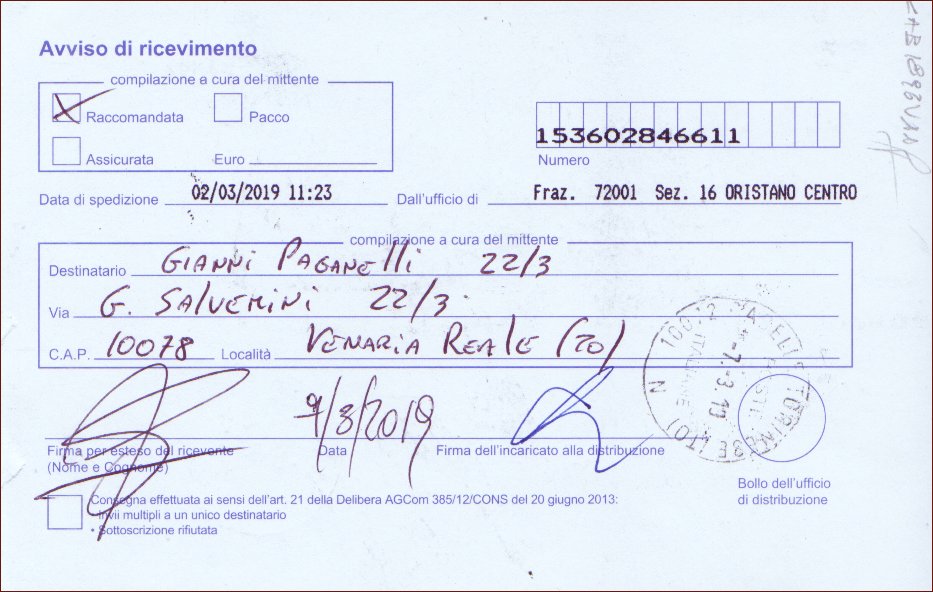 Avviso di ricevimento
compilazione a cura del mittente
Raccomandata Pacco
Assicurata Euro
153602846611
Numero
Data di spedizione 02/03/2019 11:23 Dall'ufficio di Fraz. 72001 Sez. 16 ORISTANO CENTRO
compilazione a cura del mittente
Destinatario GIANNI PAGANElli 22/3
Via G. SAlVEMINI 22/3
C.A.P. 10078 Località VENARIA REAlE (TO)
Firma per esteso del ricevente
(Nome e Cognome)
Data
Firma dell'incaricato alla distribuzione
Bollo dell'ufficio
di distribuzione
Consegna effettuata ai sensi dell'art. 21 della Delibera AGCom 385/12/CONS del 20 giugno 2013:
Invii multipli a un unico destinatario
• Sottoscrizione rifiutata